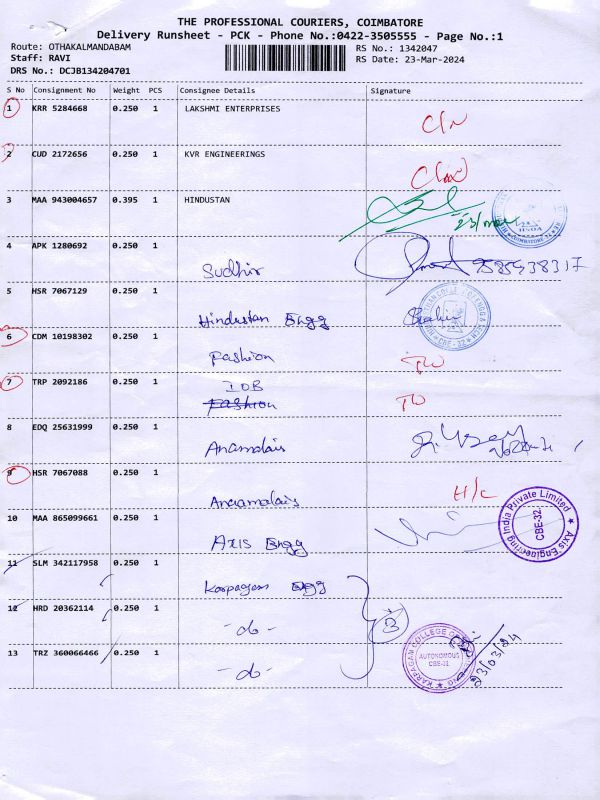 THE PROFESSIONAL COURIERS, COIMBATORE
Delivery Runsheet - PCK - Phone No.:0422-3505555 - Page No.:1
Route: OTHAKALMANDABAM RS No.: 1342047
Staff: RAVI RS Date: 23-Mar-2024
DRS No.: DCJB134204701
S No Consignment No Weight PCS Consignee Details Signature
1 KRR 5284668 0.250 1 LAKSHMI ENTERPRISES
2 CUD 2172656 0.250 1 KVR ENGINEERINGS
3 MAA 943004657 0.395 1 HINDUSTAN
4 APK 1280692 0.250 1
Sudhir
5 HSR 7067129 0.250 1
Hindustan Engg
6 CDM 10198302 0.250 1
Fashion
7 TRP 2092186 0.250 1 IOB
Fashion
8 EDQ 25631999 0.250 1
Anamalais
9 HSR 7067088 0.250 1
H/C
Anaamalais
10 MAA 865099661 0.250 1
Axis Engg
Axis Engineering India Private Limited
CBE-32.
11 SLM 342117958 0.250 1 Karpagam Engg
12 HRD 20362114 0.250 1
-do-
3
13 TRZ 360066466 0.250 1
-do-
KARPAGAM COLLEGE
AUTONOMOUS
CBE-32
23/03/24